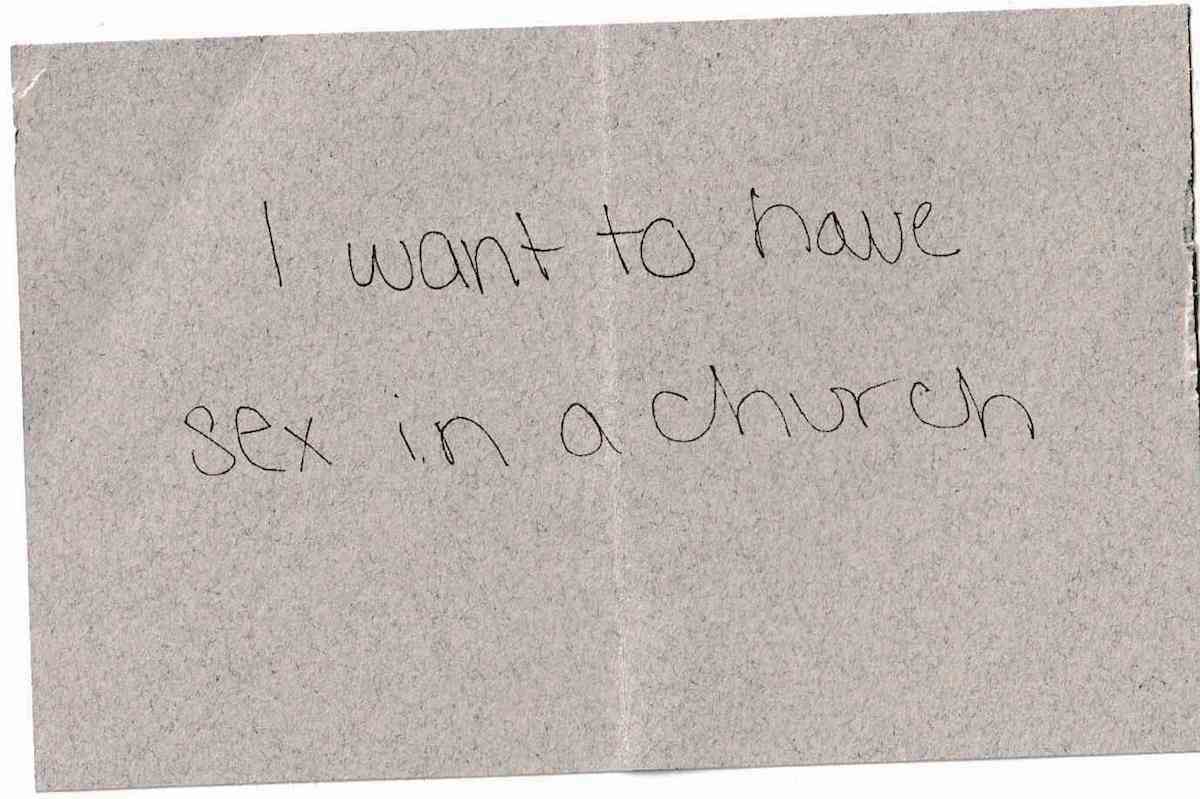 I want to have
sex in a church